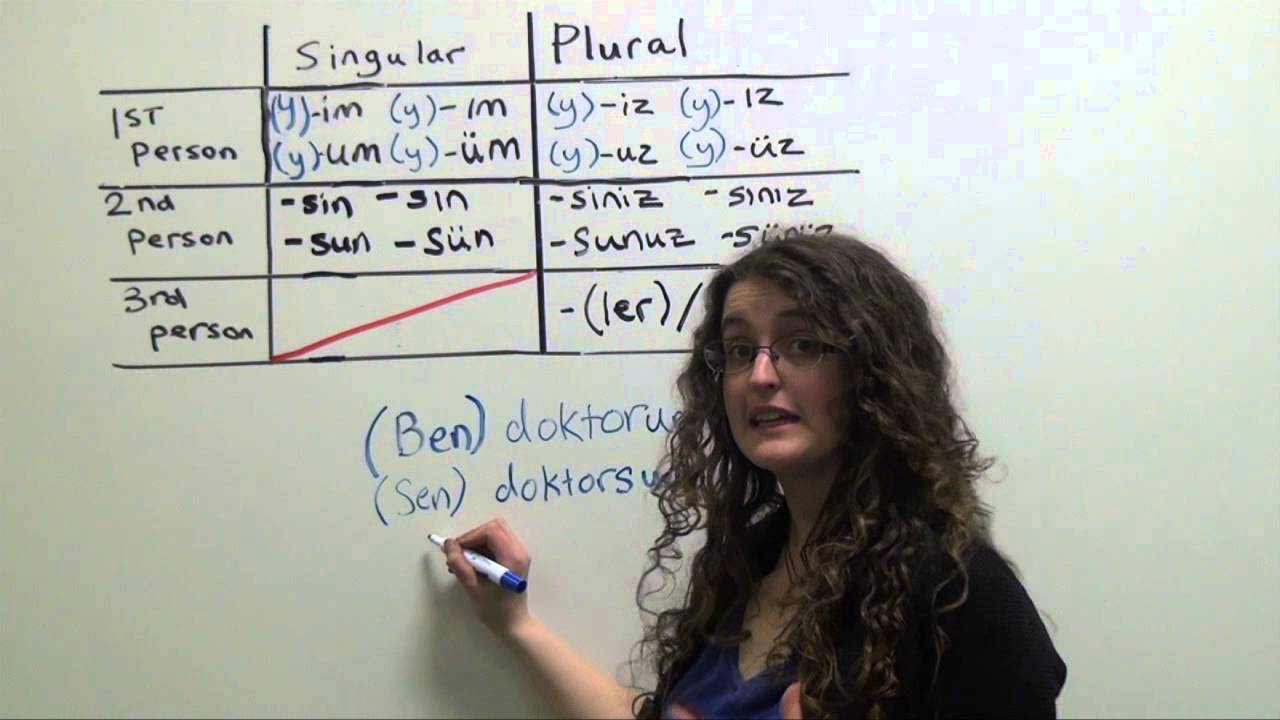 Singular Plural
1ST (y)-im (y)-ım (y)-iz (y)-ız
person (y)-um (y)-üm (y)-uz (y)-üz
2nd -sin -sın -siniz -sınız
person -sun -sün -sunuz -sünüz
3rd
person -(ler)/
(Ben) doktoru
(Sen) doktorsu